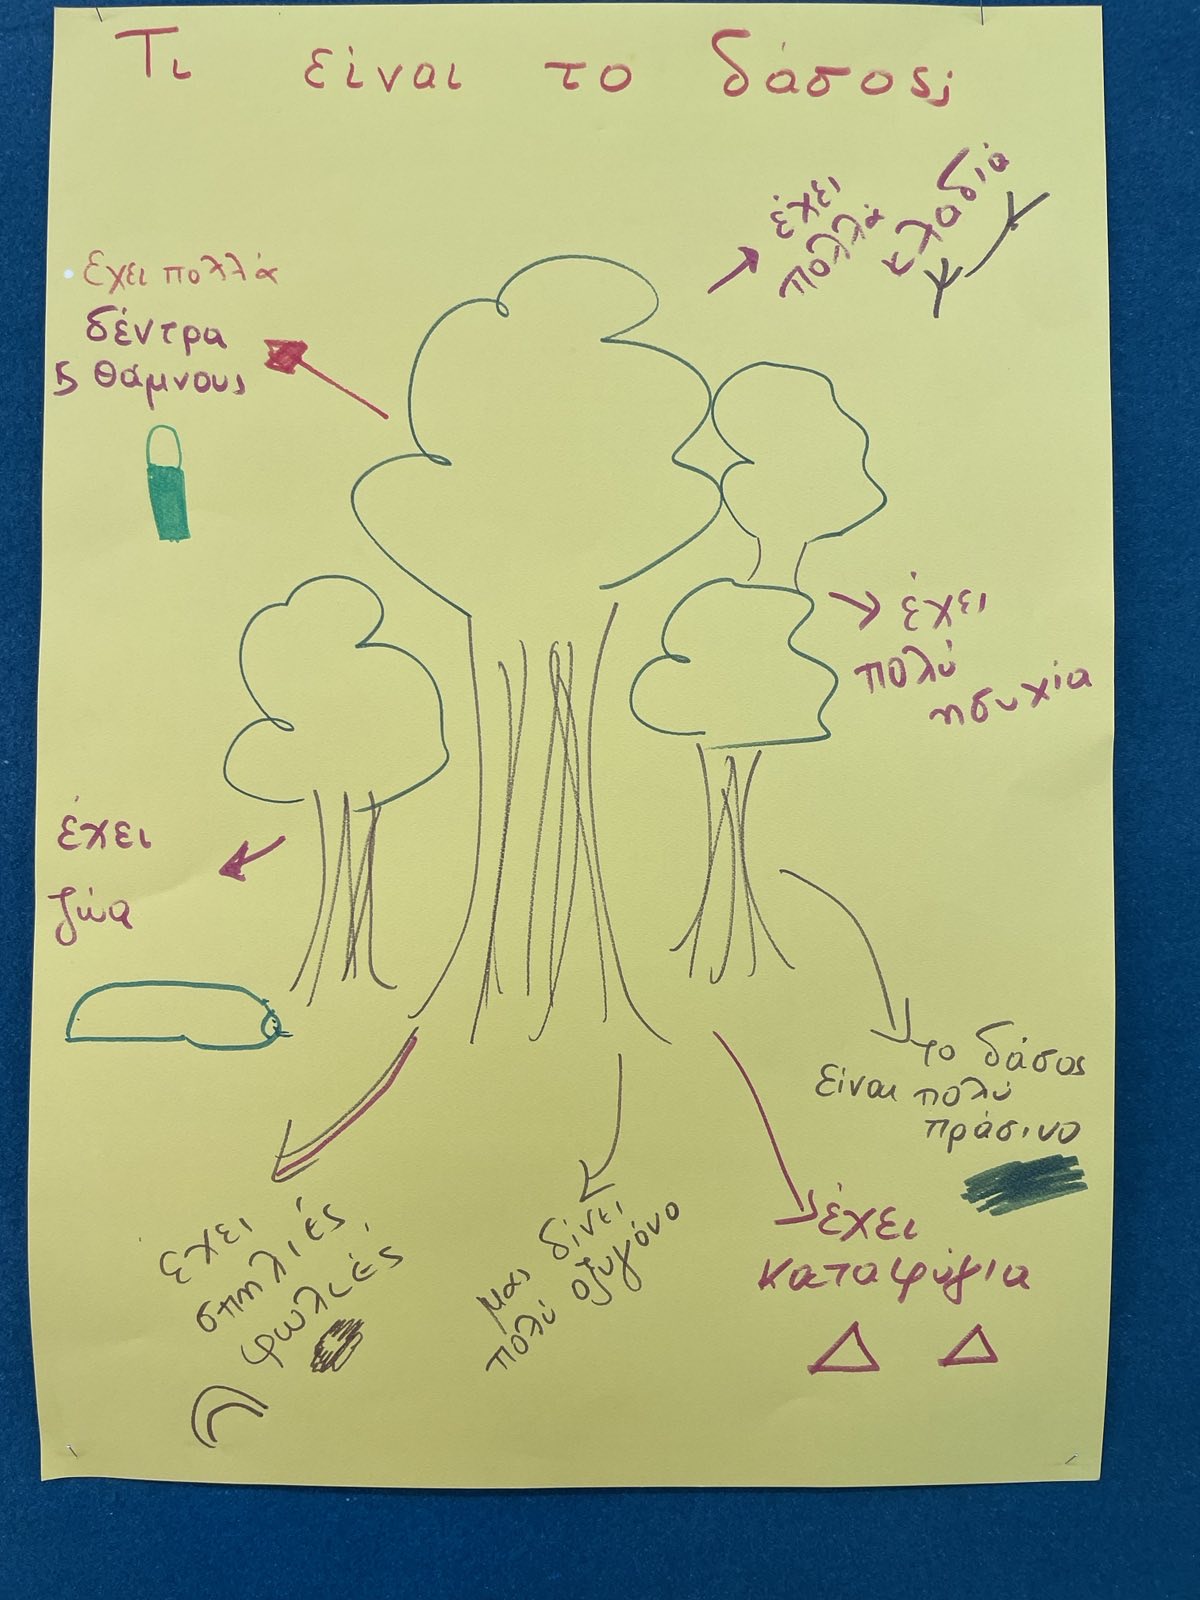 Τι είναι το δάσος;
έχει
πολλά
κλαδιά
έχει πολλά
δέντρα
θάμνους
έχει
πολύ
ησυχία
έχει
ζώα
το δάσος
είναι πολύ
πράσινο
έχει
σπηλιές
φωλιές
μας δίνει
πολύ οξυγόνο
έχει
καταφύγια